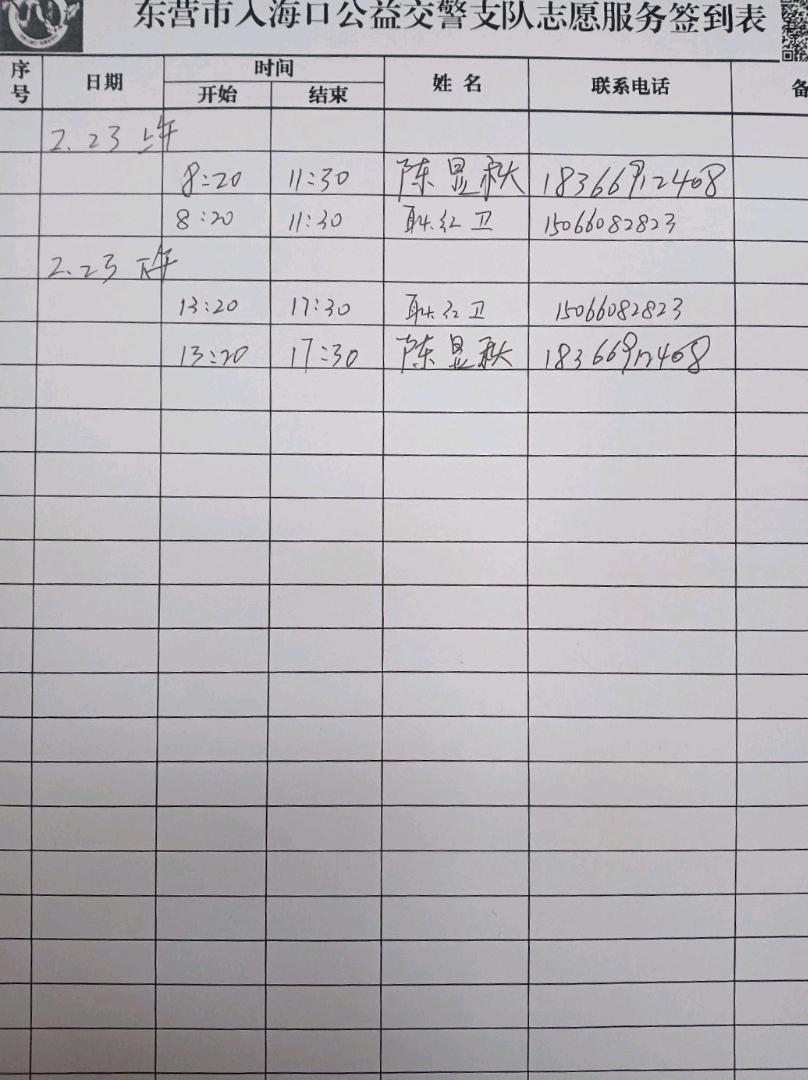 东营市入海口公益交警支队志愿服务签到表
序号 日期 时间 姓名 联系电话 备
开始 结束
2.23 上午
8:20 11:30 陈显秋 18366912408
8:20 11:30 耿红卫 15066082823
2.23 下午
13:20 17:30 耿红卫 15066082823
13:20 17:30 陈显秋 18366912408